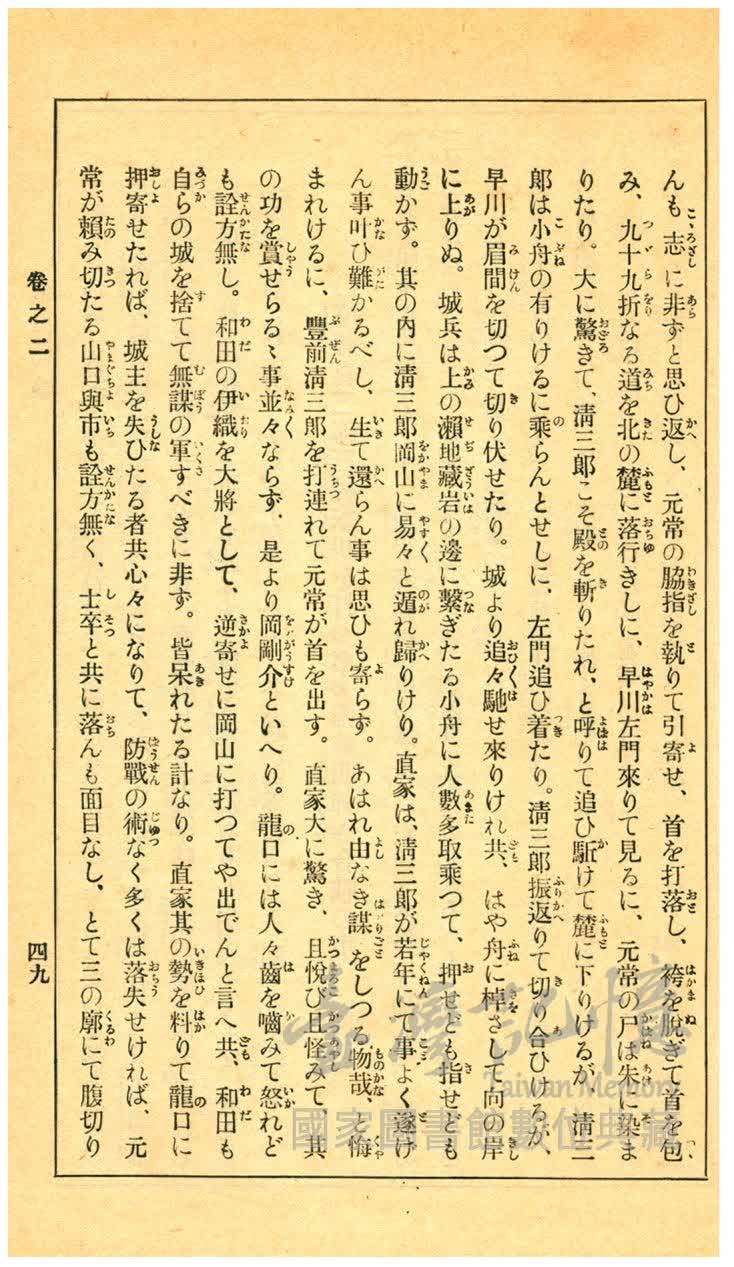 んも志に非ずと思ひ返し、元常の脇指を執りて引寄せ、首を打落し、袴を脱ぎて首を包
み、九十九折なる道を北の麓に落行きしに、早川左門來りて見るに、元常の尸は朱に染ま
りたり。大に驚きて、淸三郎こそ殿を斬りたれ、と呼りて追ひ駈けて麓に下りけるが、淸三
郎は小舟の有りけるに乘らんとせしに、左門追ひ着たり。淸三郎振返りて切り合ひけるが、
早川が眉間を切つて切り伏せたり。城より追々馳せ來りけれ共、はや舟に棹さして向の岸
に上りぬ。城兵は上の瀨地藏岩の邊に繫ぎたる小舟に人數多取乘つて、押せども指せども
動かず。其の內に淸三郎岡山に易々と遁れ歸りけり。直家は、淸三郎が若年にて事よく遂げ
ん事叶ひ難かるべし、生て還らん事は思ひも寄らず。あはれ由なき謀をしつる物哉、と悔
まれけるに、豐前淸三郎を打連れて元常が首を出す。直家大に驚き、且悅び且怪みて、其
の功を賞せらるゝ事並々ならず。是より岡剛介といへり。龍口には人々齒を嚙みて怒れど
も詮方無し。和田の伊織を大將として、逆寄せに岡山に打つてや出でんと言へ共、和田も
自らの城を捨てて無謀の軍すべきに非ず。皆呆れたる計なり。直家其の勢を料りて龍口に
押寄せたれば、城主を失ひたる者共心々になりて、防戰の術なく多くは落失せければ、元
常が賴み切たる山口與市も詮方無く、士卒と共に落んも面目なし、とて三の廓にて腹切り
卷之二
四九
臺灣記憶
Taiwan Memory
國家圖書館數位典藏